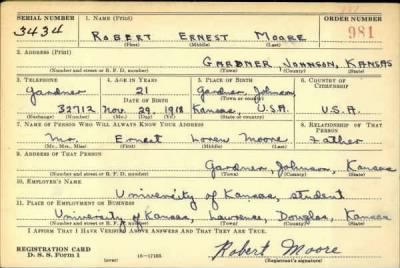 SERIAL NUMBER 1. NAME (Print) ORDER NUMBER
3434 ROBERT ERNEST MOORE 981
(First) (Middle) (Last)
2. ADDRESS (Print)
GARDNER JOHNSON, KANSAS
(Number and street or R. F. D. number) (Town) (County) (State)
3. TELEPHONE 4. AGE IN YEARS 5. PLACE OF BIRTH 6. COUNTRY OF CITIZENSHIP
Gardner 21 Gardner, Johnson
DATE OF BIRTH (Town or county)
327 12 Nov. 29 1918 Kansas, U.S.A. U.S.A.
(Exchange) (Number) (Mo.) (Day) (Yr.) (State or country)
7. NAME OF PERSON WHO WILL ALWAYS KNOW YOUR ADDRESS 8. RELATIONSHIP OF THAT PERSON
Mr. Ernest Loren Moore Father
(Mr., Mrs., Miss) (First) (Middle) (Last)
9. ADDRESS OF THAT PERSON
Gardner, Johnson, Kansas
(Number and street or R. F. D. number) (Town) (County) (State)
10. EMPLOYER'S NAME
University of Kansas, student
11. PLACE OF EMPLOYMENT OR BUSINESS
University of Kansas, Lawrence, Douglas, Kansas
(Number and street or R. F. D. number) (Town) (County) (State)
I AFFIRM THAT I HAVE VERIFIED ABOVE ANSWERS AND THAT THEY ARE TRUE.
REGISTRATION CARD
D. S. S. Form 1 (over) 16-17105 Robert Moore
(Registrant's signature)